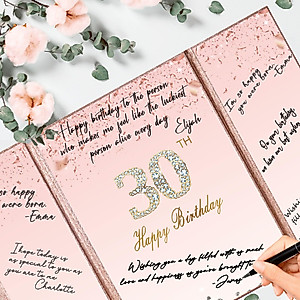 so happy
were born.
Emma
I hope today is
as special to you
as you are to me
Charlotte
Happy birthday to the person
who makes me feel like the luckiest
person alive every day
Elijah
30TH
Happy Birthday
Wishing you a day filled with as much
love and happiness as you've brought to
I'm so happy
you were born.
Emma
On your birthday,